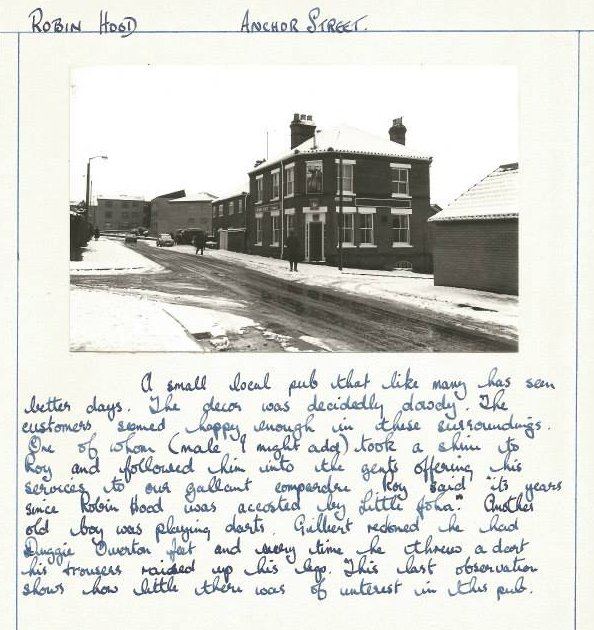 ROBIN HOOD ANCHOR STREET.
A small local pub that like many has seen
better days. The decor was decidedly dowdy. The
customers seemed happy enough in these surroundings.
One of whom (male I might add) took a shine to
Roy and followed him into the gents offering his
services to our gallant Roy said "its years
since Robin Hood was accosted by Little John." Another
old boy was playing darts. Gilbert reckoned he had
Duggie Overton feet and every time he threw a dart
his trousers raised up his legs. This last observation
shows how little there was of interest in this pub.